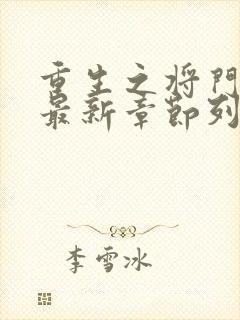 重生之将门
最新章节列
李雪冰